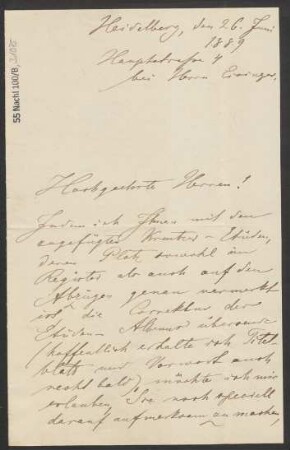 Heidelberg, den 26. Juni
1889
Hauptstrasse 4
bei Herrn
55 Nachl 100/B,
Hochgeehrte Herren!
Indem ich Ihnen mit den
angefügten Etüden,
deren Platz sowohl im
Register als auch auf den
Abzügen genau vermerkt
ist, die Correktur der
Etüden-Album übersende
(hoffentlich erhalte ich Titel-
blatt und Vorwort auch
recht bald) möchte ich mir
erlauben, Sie noch speciell
darauf aufmerksam zu machen,